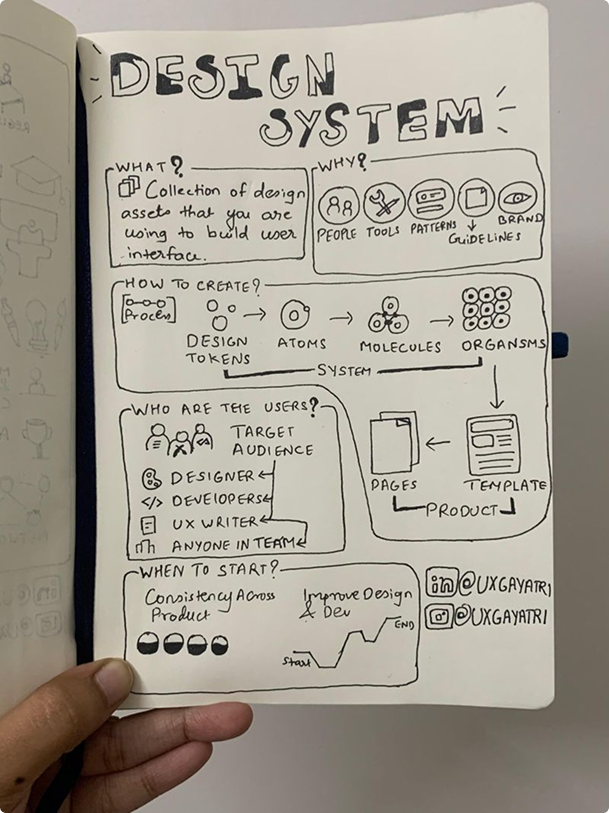 DESIGN
SYSTEM
WHAT?
Collection of design
assets that you are
using to build user
interface.
WHY?
PEOPLE TOOLS PATTERNS GUIDELINES BRAND
HOW TO CREATE?
[Process]
DESIGN
TOKENS
ATOMS
MOLECULES
ORGANSMS
SYSTEM
TEMPLATE
PAGES
PRODUCT
WHO ARE THE USERS?
TARGET
AUDIENCE
DESIGNER
</> DEVELOPERS
UX WRITER
ANYONE IN TEAM
WHEN TO START?
Consistency Across
Product
Improve Design
& Dev
Start
END
in @UXGAYATRI
@UXGAYATRI